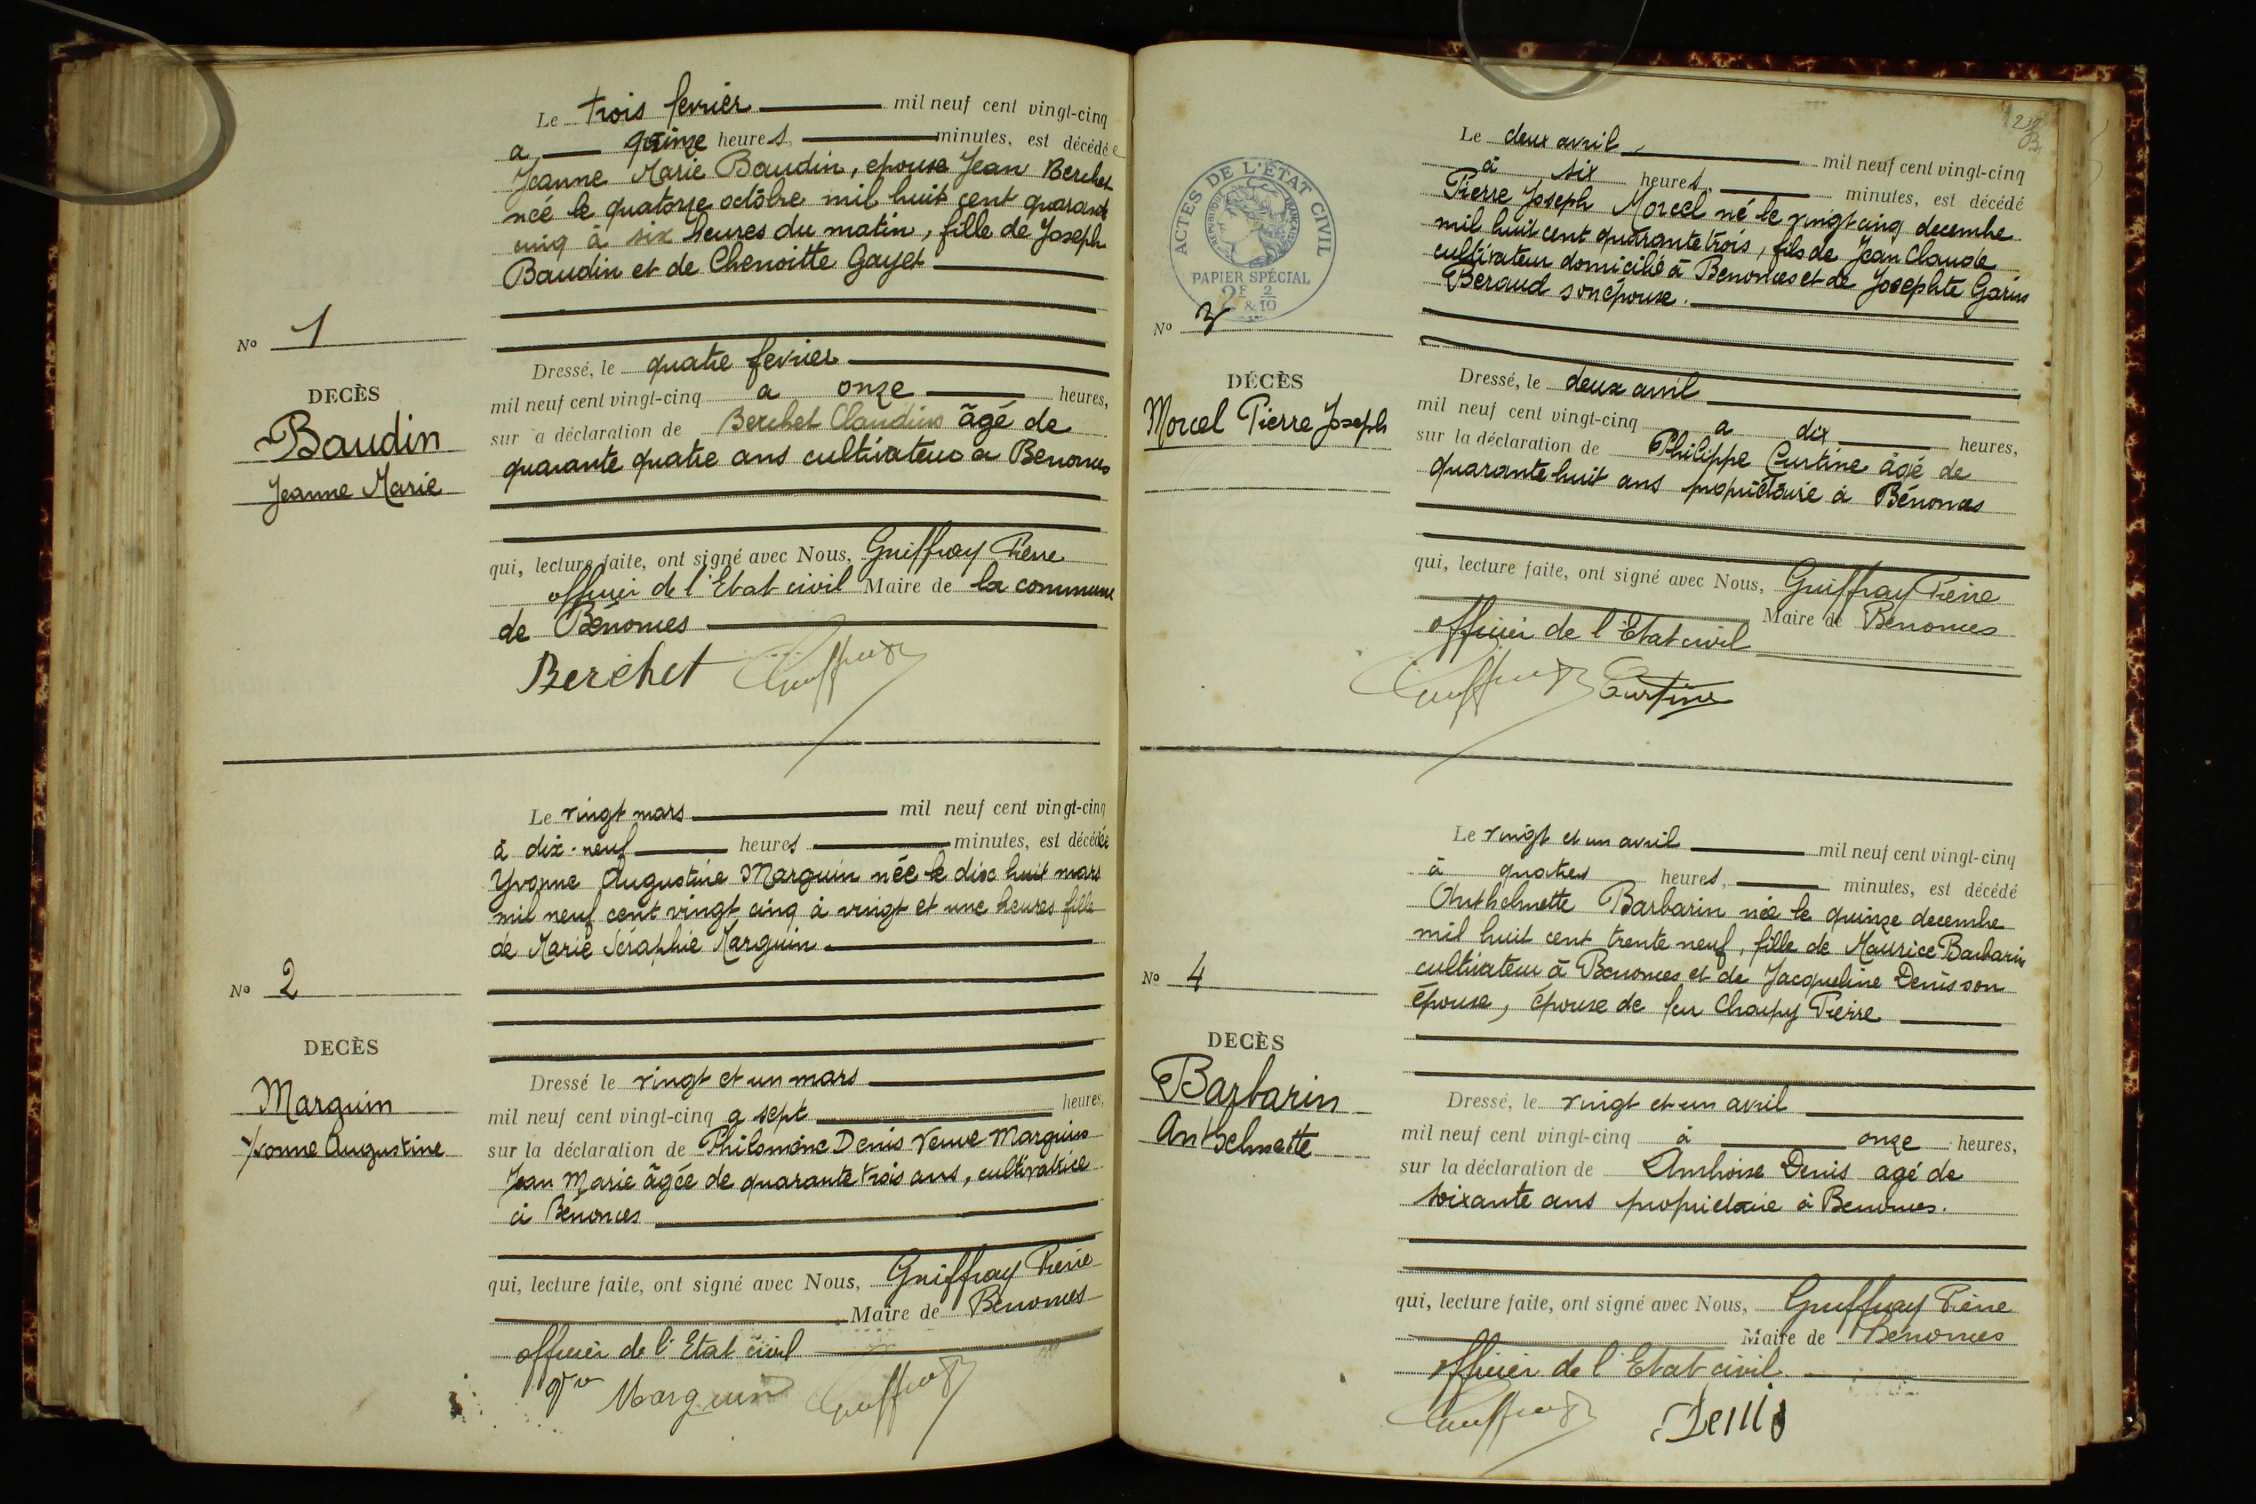 Le trois fevrier mil neuf cent vingt-cinq
a quinze heures minutes, est décédée
Jeanne Marie Baudin, epouse Jean Berchet
née le quatorze octobre mil huit cent quarante
cinq à six heures du matin, fille de Joseph
Baudin et de Chenoitte Gayet
No 1
DECÈS
Baudin
Jeanne Marie
Dressé, le quatre fevrier
mil neuf cent vingt-cinq a onze heures,
sur a déclaration de Berchet Claudius âgé de
quarante quatre ans cultivateur a Benonces
qui, lecture faite, ont signé avec Nous, Guiffray Pierre
officier de l'Etat civil Maire de la commune
de Bénonces
Berchet Guiffray
Le vingt mars mil neuf cent vingt-cinq
à dix-neuf heures minutes, est décédée
Yvonne Augustine Marguin née le dix huit mars
mil neuf cent vingt cinq à vingt et une heures fille
de Marie Séraphie Marguin
No 2
DECÈS
Marguin
Yvonne Augustine
Dressé le vingt et un mars
mil neuf cent vingt-cinq a sept heures,
sur la déclaration de Philomène Denis Veuve Marguin
Jean Marie âgée de quarante trois ans, cultivatrice
à Bénonces
qui, lecture faite, ont signé avec Nous, Guiffray Pierre
Maire de Bénonces
officier de l'Etat civil
Vve Marguin Guiffray
ACTES DE L'ÉTAT CIVIL
RÉPUBLIQUE FRANÇAISE
PAPIER SPÉCIAL
2F & 2/10
Le deux avril mil neuf cent vingt-cinq
à six heures, minutes, est décédé
Pierre Joseph Morcel né le vingt cinq decembre
mil huit cent quarante trois, fils de Jean Claude
cultivateur domicilié à Benonces et de Josephte Garin
Beraud son épouse.
No 3
DÉCÈS
Morcel Pierre Joseph
Dressé, le deux avril
mil neuf cent vingt-cinq a dix heures,
sur la déclaration de Philippe Curtine âgé de
quarante huit ans propriétaire à Bénonces
qui, lecture faite, ont signé avec Nous, Guiffray Pierre
Maire de Bénonces
officier de l'Etat civil
Guiffray Curtine
Le vingt et un avril mil neuf cent vingt-cinq
à quatres heures, minutes, est décédé
Anthelmette Barbarin née le quinze decembre
mil huit cent trente neuf, fille de Maurice Barbarin
cultivateur à Benonces et de Jacqueline Denis son
épouse, épouse de feu Chaupy Pierre
No 4
DECÈS
Barbarin
Anthelmette
Dressé, le vingt et un avril
mil neuf cent vingt-cinq à onze heures,
sur la déclaration de Ambroise Denis agé de
soixante ans proprietaire à Benonces.
qui, lecture faite, ont signé avec Nous, Guiffray Pierre
Maire de Bénonces
officier de l'Etat civil
Guiffray Denis